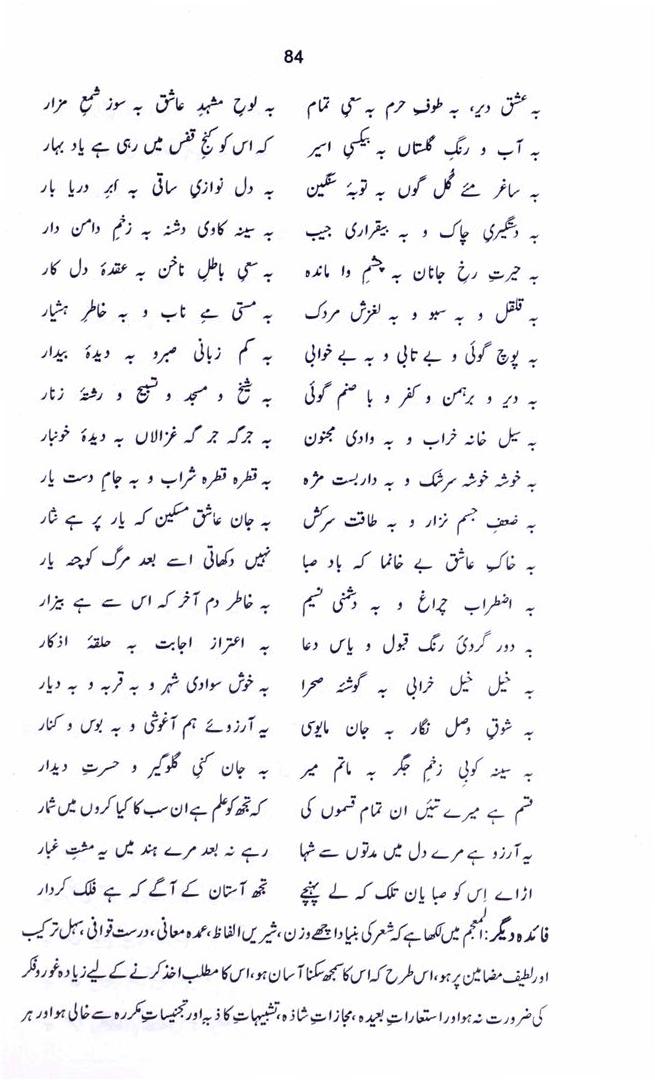 84
بہ عشق دیر، بہ طوف حرم بہ سعیِ تمام بہ لوحِ مشہدِ عاشق بہ سوز شمعِ مزار
بہ آب و رنگِ گلستاں بہ بیکسیِ اسیر کہ اس کو کنجِ قفس میں رہی ہے یاد بہار
بہ ساغر مئے گل گوں بہ توبۂ سنگین بہ دل نوازیِ ساقی بہ ابرِ دریا بار
بہ دستگیریِ چاک و بہ بیقراری جیب بہ سینہ کاوی دشنہ بہ زخمِ دامن دار
بہ حیرتِ رخِ جاناں بہ چشمِ وا ماندہ بہ سعیِ باطلِ ناخن بہ عقدۂ دل کار
بہ قلقل و بہ سبو و بہ لغزش مردک بہ مستی مے ناب و بہ خاطرِ ہشیار
بہ پوچ گوئی و بے تابی و بہ بے خوابی بہ کم زبانی صبرو بہ دیدۂ بیدار
بہ دیر و برہمن و کفر و با صنم گوئی بہ شیخ و مسجد و تسبیح و رشتۂ زنار
بہ سیل خانہ خراب و بہ وادی مجنون بہ جرگہ جرگہ غزالاں بہ دیدۂ خونبار
بہ خوشہ خوشہ سرشک و بہ داربست مژہ بہ قطرہ قطرہ شراب و بہ جامِ دست یار
بہ ضعفِ جسم نزار و بہ طاقت سرکش بہ جان عاشق مسکین کہ یار پر ہے نثار
بہ خاکِ عاشق بے خانما کہ باد صبا نہیں دکھاتی اسے بعد مرگ کوچہ یار
بہ اضطراب چراغ و بہ دشمنی نسیم بہ خاطر دم آخر کہ اس سے ہے بیزار
بہ دور گردیٔ رنگ قبول و یاس دعا بہ اعتزاز اجابت بہ حلقۂ اذکار
بہ خیل خیل خرابی بہ گوشۂ صحرا بہ خوش سوادی شہر و بہ قریہ و بہ دیار
بہ شوقِ وصل نگار بہ جان مایوسی بہ آرزوئے ہم آغوشی و بہ بوس و کنار
بہ سینہ کوبیِ زخمِ جگر بہ ماتم میر بہ جان کنیِ گلوگیر و حسرتِ دیدار
قسم ہے میرے تئیں ان تمام قسموں کی کہ تجھ کو علم ہے ان سب کا کیا کروں میں شمار
یہ آرزو ہے مرے دل میں مدتوں سے شہا رہے نہ بعد مرے ہند میں یہ مشتِ غبار
اڑاے اِس کو صبا یان تلک کہ لے پہنچے تجھ آستان کے آگے کہ ہے فلک کردار
فائدہ دیگر: المعجم میں لکھا ہے کہ شعر کی بنیاد اچھے وزن، شیریں الفاظ، عمدہ معانی، درست قوافی، سہل ترکیب
اور لطیف مضامین پر ہو، اس طرح کہ اس کا سمجھ سکنا آسان ہو، اس کا مطلب اخذ کرنے کے لیے زیادہ غور و فکر
کی ضرورت نہ ہو اور استعاراتِ بعیدہ، مجازاتِ شاذہ، تشبیہاتِ کاذبہ اور تجنیساتِ مکررہ سے خالی ہو اور ہر